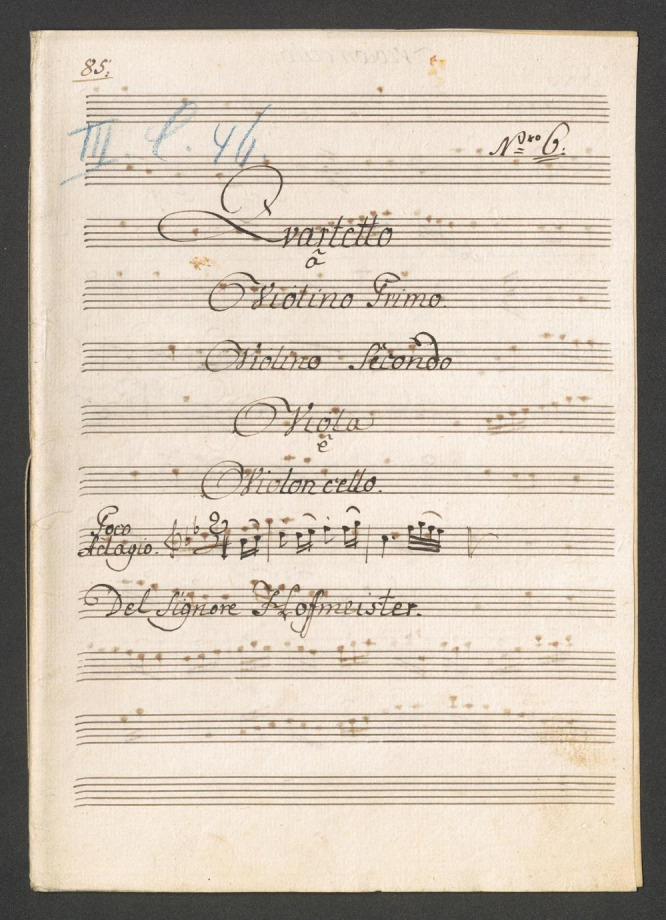 85.
III. C. 46.
Nro 6.
Quartetto
â
Violino Primo.
Violino Secondo
Viola
ê
Violoncello.
Poco
Adagio.
Del Signore Hofmeister.